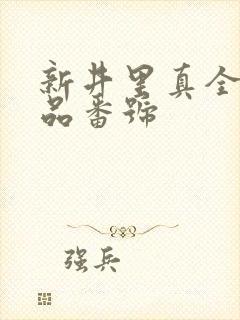 新井里真全
品番號
强兵